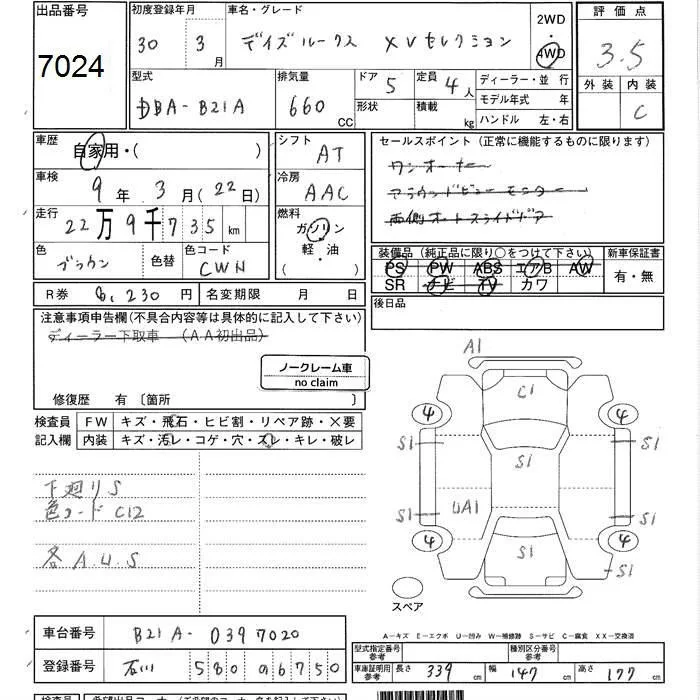 出品番号
7024
初度登録年月
30 3月
車名・グレード
デイズルークス XVセレクション
2WD
4WD
評価点
3.5
外装 内装
C
型式
DBA-B21A
排気量
660 CC
ドア 5
形状
定員 4人
積載 kg
ディーラー・並行
モデル年式 年
ハンドル 左・右
車歴
自家用・( )
シフト
AT
セールスポイント (正常に機能するものに限ります)
ワンオーナー
アラウンドビューモニター
両側オートスライドドア
車検
9年 3月(22日)
冷房
AAC
走行
22万9千735km
燃料
ガソリン
軽・油
( )
色
ブラウン
色替
色コード
CWN
装備品 (純正品に限り○をつけて下さい)
PS PW ABS エアB AW
SR ナビ TV カワ
新車保証書
有・無
R券 8,230円
名変期限 月 日
後日品
注意事項申告欄(不具合内容等は具体的に記入して下さい)
ディーラー下取車 (AA初出品)
ノークレーム車
no claim
修復歴 有 〔箇所 〕
検査員
記入欄
FW キズ・飛石・ヒビ割・リペア跡・×要
内装 キズ・汚レ・コゲ・穴・スレ・キレ・破レ
下廻りS
色コードC12
各A.U.S
A1
C1
4
4
S1
S1
S1
UA1
S1
S1
4
4
S1
S1
スペア
A−キズ E−エクボ U−凹み W−補修跡 S−サビ C−腐食 XX−交換済
車台番号
B21A-0397020
登録番号
石川 580 の6750
型式指定番号
参考
種別区分番号
参考
車庫証明用
参考
長さ 339cm
幅 147cm
高さ 177cm